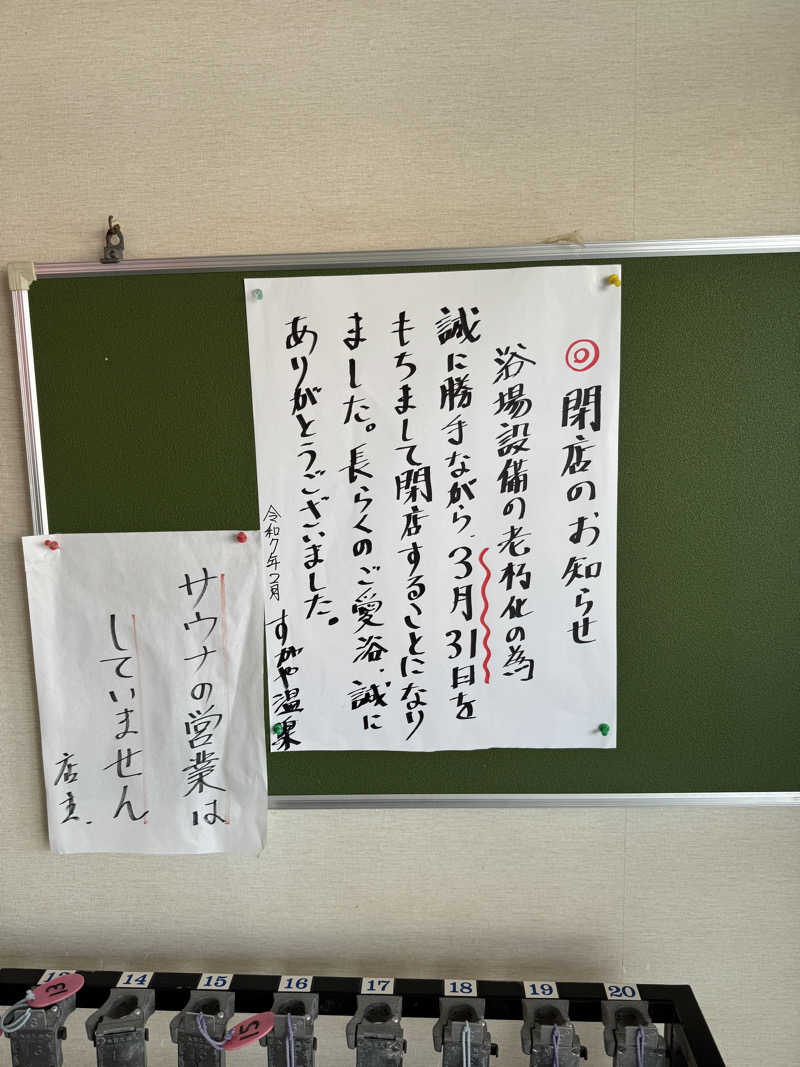 ◎閉店のお知らせ
浴場設備の老朽化の為
誠に勝手ながら、3月31日を
もちまして閉店することになり
ました。長らくのご愛浴、誠に
ありがとうございました。
令和7年2月 すがや温泉
サウナの営業は
していません
店主.
13
14
15
16
17
18
19
20
13
15